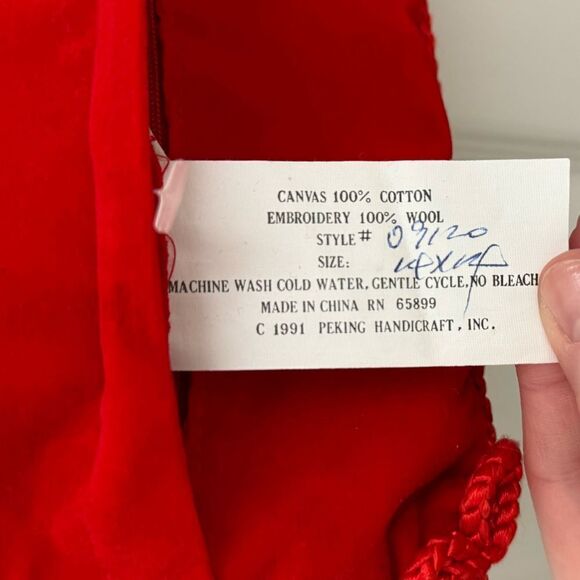 CANVAS 100% COTTON
EMBROIDERY 100% WOOL
STYLE # 09120
SIZE: 14X14
MACHINE WASH COLD WATER, GENTLE CYCLE, NO BLEACH
MADE IN CHINA RN 65899
C 1991 PEKING HANDICRAFT, INC.